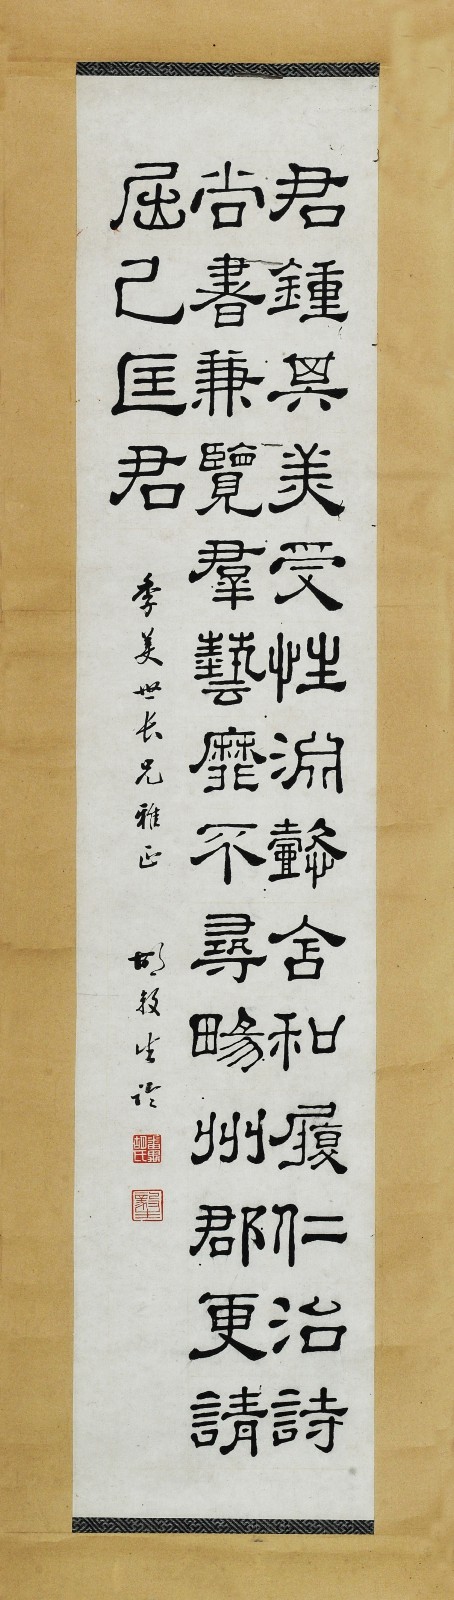 君鍾其美受性淵懿含和履仁治詩
尚書兼覽羣藝靡不尋畼州郡更請
屈己匡君
季美世长兄雅正
胡毅生
番禺胡氏